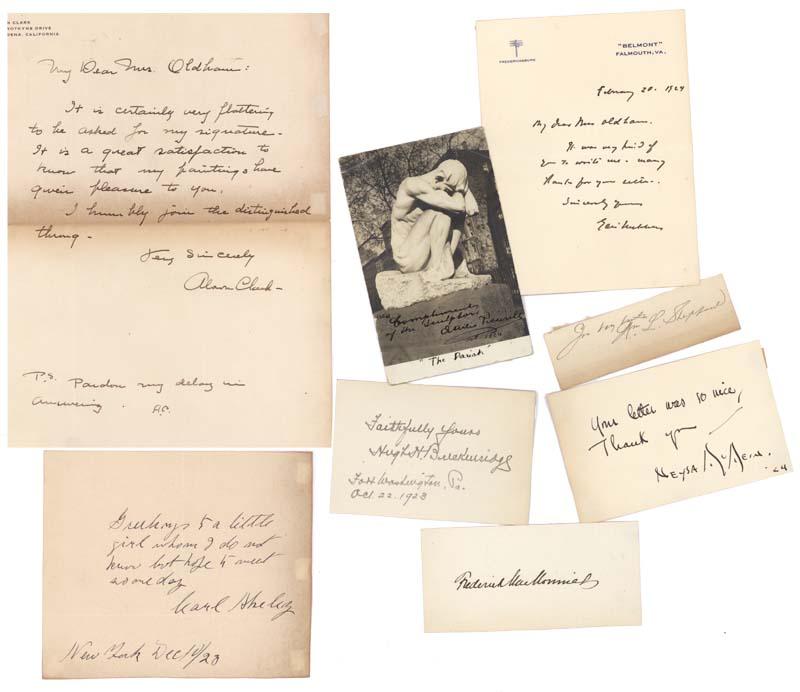 N CLARK
OTHYNE DRIVE
DENA, CALIFORNIA
My Dear Mrs. Oldham:
It is certainly very flattering
to be asked for my signature.
It is a great satisfaction to
know that my paintings have
given pleasure to you.
I humbly join the distinguished
throng.
Very Sincerely
Alson Clark
P.S. Pardon my delay in
answering. A.C.
FREDERICKSBURG
"BELMONT"
FALMOUTH, VA.
February 20. 1924
My dear Mrs Oldham.
It was very kind of
you to write me. Many
thanks for your letter.
Sincerely yours
Compliments
of the Sculptor
1924
"The Pariah"
Wm. L. Sheppard
Faithfully Yours
Hugh H. Breckenridge
Fort Washington, Pa.
Oct. 22. 1923
Your letter was so nice,
Thank you —
NEYSA McMEIN.
Greetings to a little
girl whom I do not
know but hope to meet
some day
Karl Akeley
New York Dec 18/23
Frederick MacMonnies